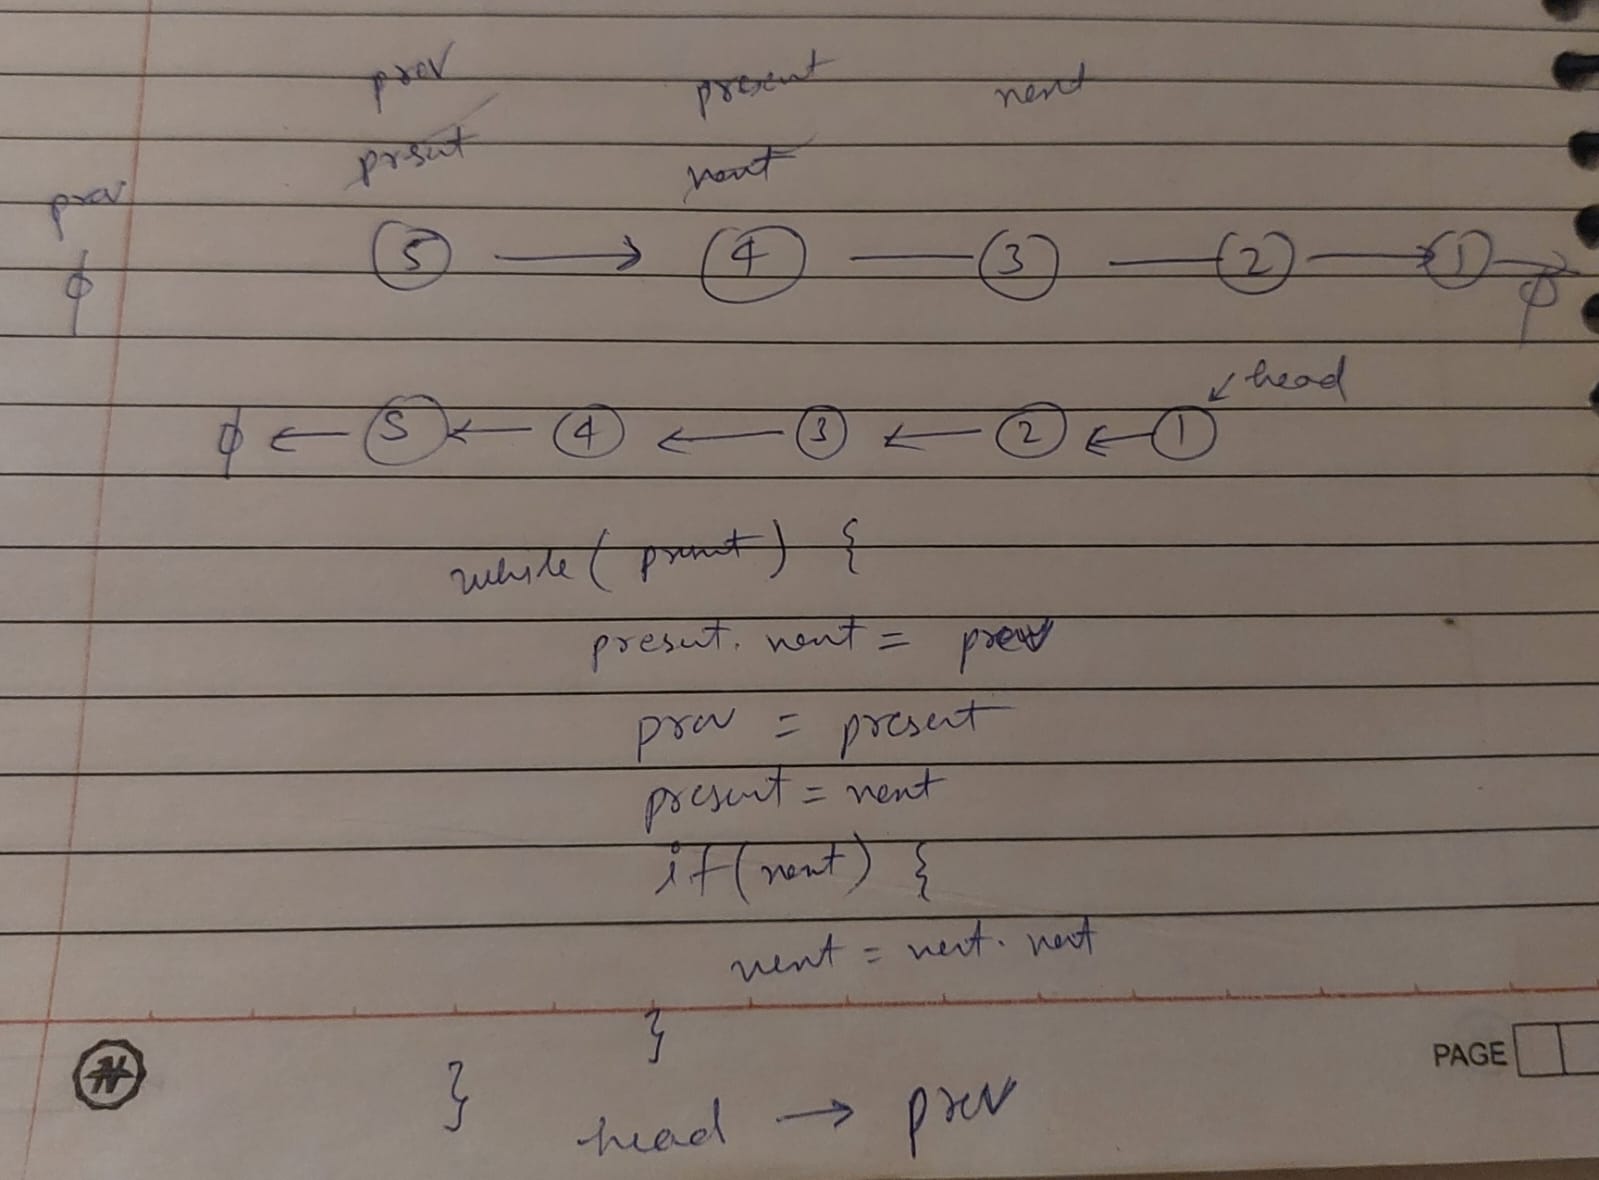 prev present next
present next
prev
ϕ 5 → 4 — 3 — 2 → 1 → ϕ
↙ head
ϕ ← 5 ← 4 ← 3 ← 2 ← 1
while ( present ) {
present. next = prev
prev = present
present = next
if (next) {
next = next. next
}
}
head → prev
PAGE